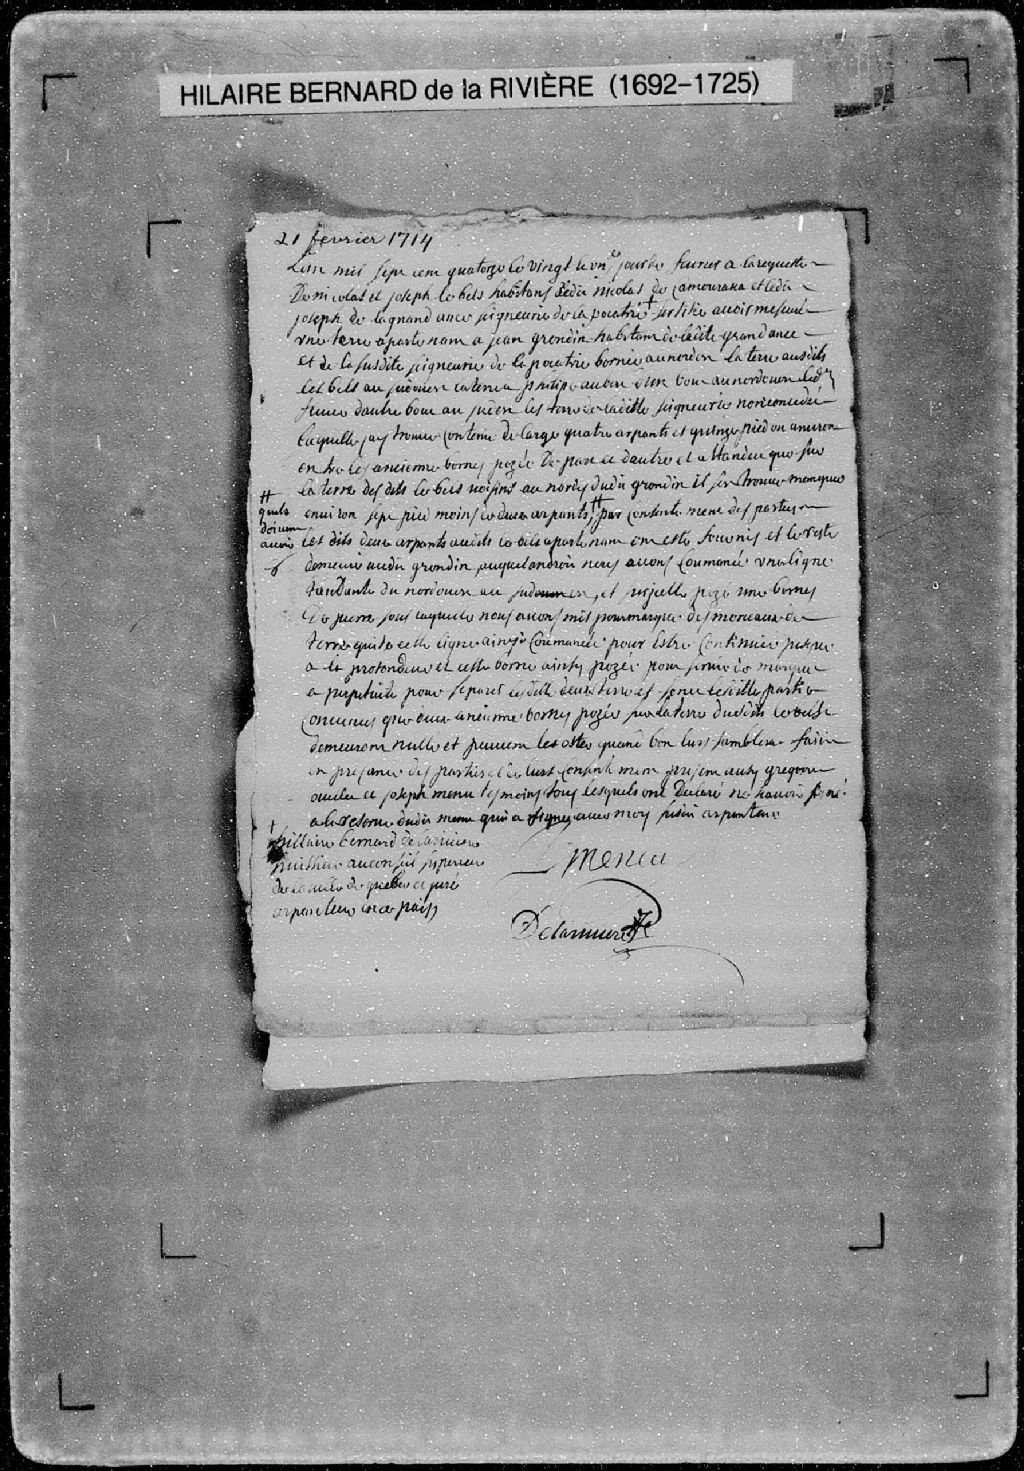 HILAIRE BERNARD de la RIVIÈRE (1692-1725)
21 fevrier 1714
Lan mil sept cent quatorze le vingt et un jour de fevrier a la requeste
De nicolas et joseph le bels habitans ledit nicolas de Camouraxa et ledit
joseph de la grand ance seigneurie de la pocatrie † avoir mesuré
une terre apartenant a jean grondin habitant de ladite grand ance
et de la susdite seigneurie de la pocatrie bornée au nordest la terre ausdits
les bels au sudouest la terre a philipe auban d'un bout au nordouest led
fleuve dautre bout au sudest les terre de laditte seigneurie non concedée
laquelle jay trouvé contenir de large quatre arpants et quinze pied ou anviron
entre les ancienne bornes pozée De part et dautre et attandeu que sur
la terre des dits le bels voisins au nordest dudit grondin il sen trouve manque
environ sept pied moins de deux arpants ‡ par consentement des parties
‡
quils
doivent
avoir
les dits deux arpants ausdits le bels apartenant ont esté fournis et le reste
demeuré audit grondin auquel androit nous avons Coumancé une ligne
tandante du nordouest au sudest, et sur icelle pozé une bornes
De pierre sous laquelle nous avons mis pour marque des morceaux de
terre cuite cette ligne ainsy Coumancée pour Estre Continuée jusque
a la profondeur et cette borne ainsy pozée pour servir de marque
a perpetuité pour separer lesditte deux terre et sont lesditte partie
Convenues que deux ancienne bornes pozée sur la terre dudits le bels
demeuront nulle et peuvent les oster quand bon leur semblera faite
en presance des parties et de leur consentement presant aussy gregoire
ouelet et joseph menu tesmoins tous lesquels ont Declaré ne savoir signé
a la reserve dudit menu qui a signé avec moy susdit arpanteur
† hillaire bernard de larivierre
huissier au conseil superieur
de la ville de quebec et juré
arpanteur en ce païs
Meneu
Delarivierre